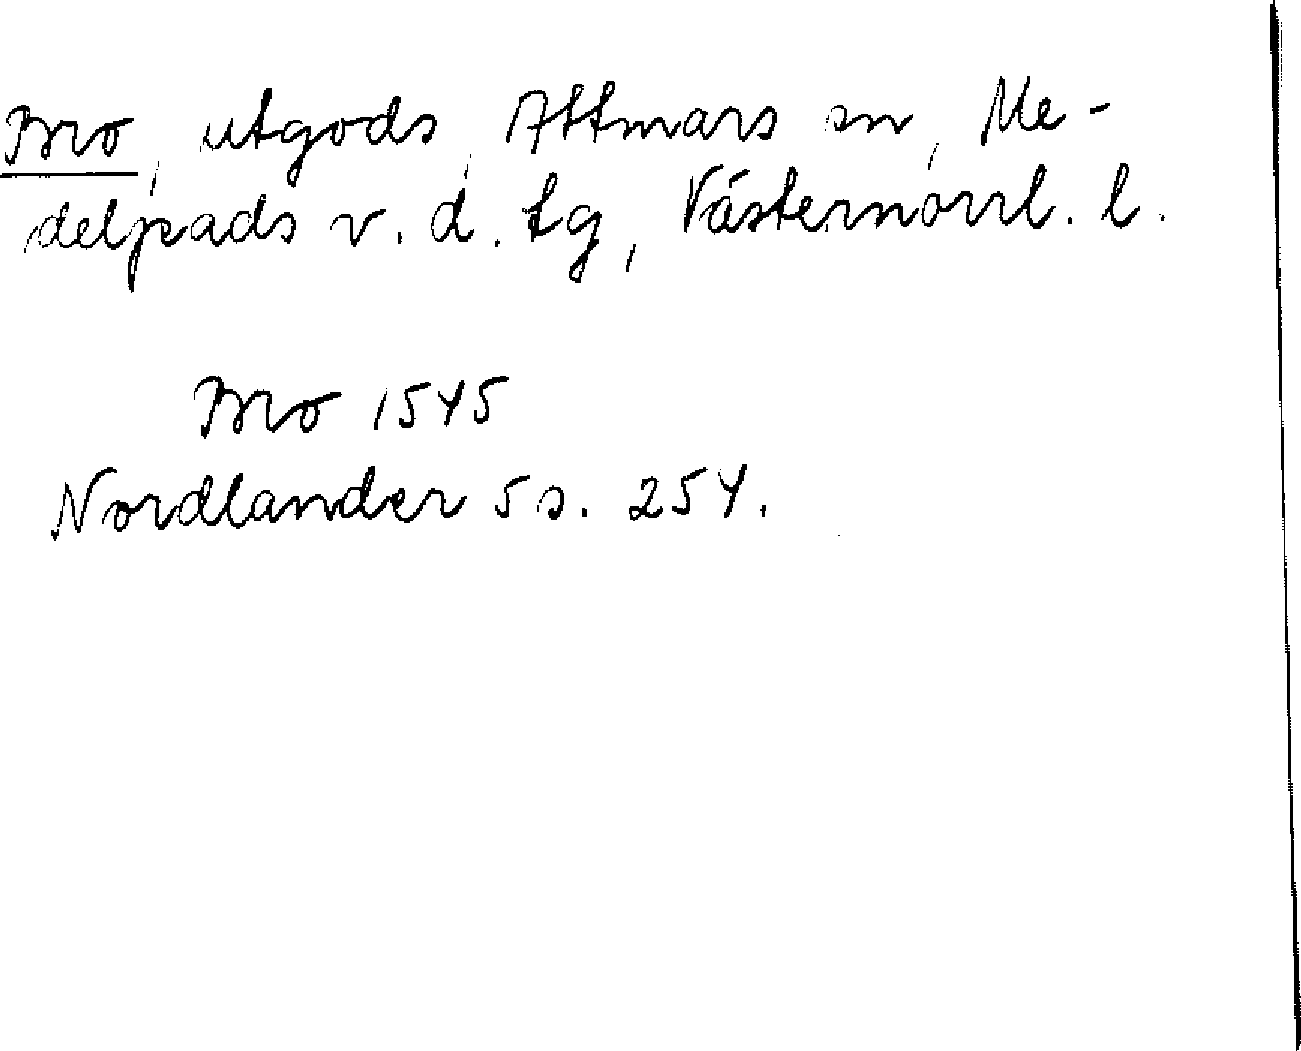 Bro, utgods, Attmars sn, Me-
delpads v. d. tg, Västernorrl. l.
Bro 1545
Nordlander 5 s. 254.